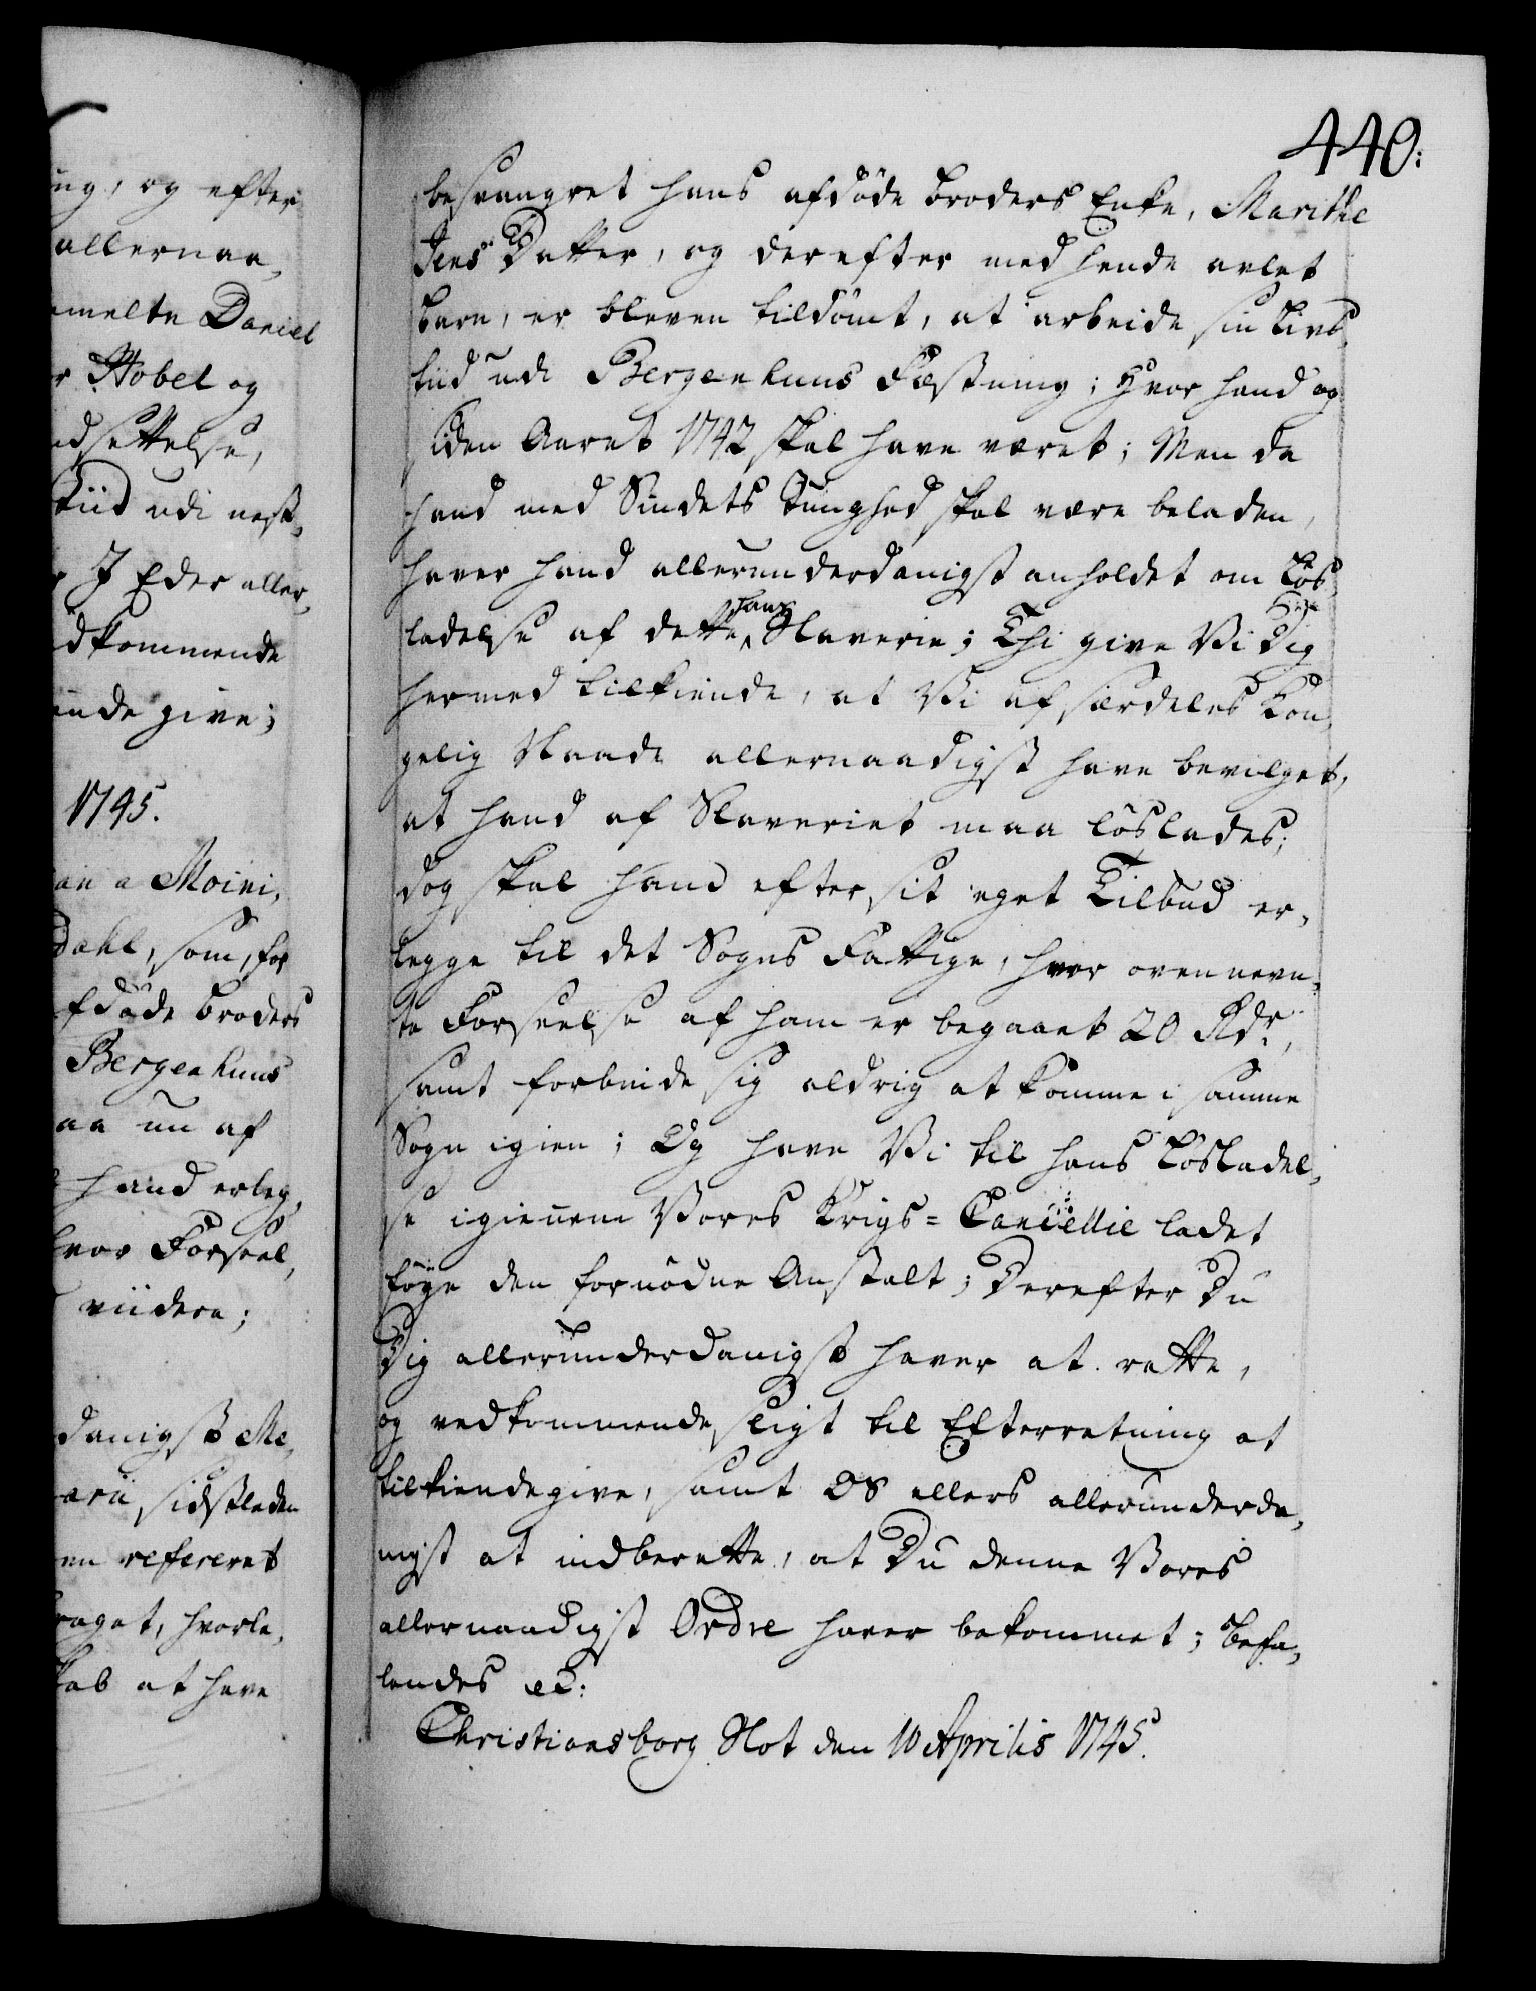 ung, og efter
allernaa,
melte Daniel
r Nobel og
dsettelse,
Tiid udi nest,
r I Eder aller,
dkommende
inde give;
1745.
an a Moini,
Dahl, som, for
fdøde broders
Bergenhuus
aa nu af
hand erleg,
hvor Forseel,
viidere;
danigst Me,
arii sidstleden
en refereret
raget, hvorle,
kab at have
440:
besvangret hans afdøde broders Enke, Marithe
Jens Datter, og derefter med hende avlet
barn, er bleven tildømt, at arbeide sin Livs,
tiid udi Bergenhuus Fæstning; Hvor hand og
siden Aaret 1742 skal have været; Men da
hand med Sindets Tunghed skal være beladen,
haver hand allerunderdanigst anholdet om Løs,
ladelse af dette hans Slaverie; Thi give Vi Dig
hermed tilkiende, at Vi af særdeles Kon,
gelig Naade allernaadigst have bevilget,
at hand af Slaveriet maa løslades;
dog skal hand efter sit eget Tilbud er,
legge til det Sogns Fattige, hvor ovennevn,
te Forseelse af ham er begaaet 20 Rdr.,
samt forbinde sig aldrig at komme i samme
Sogn igien; Og have Vi til hans Løsladel,
se igiennem Vores Krigs= Cancellie ladet
føye den fornødne Anstalt; Derefter Du
Dig allerunderdanigst haver at rette,
og vedkommende sligt til Efterretning at
tilkiendegive, samt OS ellers allerunderda,
nigst at indberette, at Du denne Vores
allernaadigst Ordre haver bekommet; Befa,
lendes ec:
Christiansborg Slot den 10 Aprilis 1745.